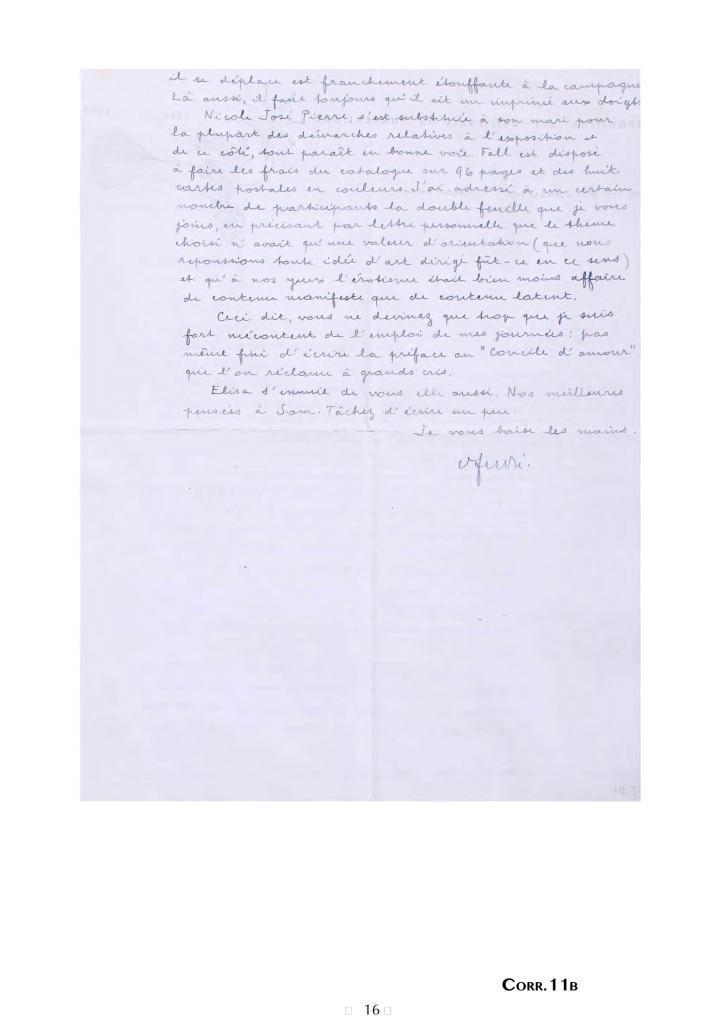 il se déplace est franchement étouffante à la campagne
Là aussi, il faut toujours qu'il ait un imprimé aux doigts
Nicole José Pierre, s'est substituée à son mari pour
la plupart des démarches relatives à l'exposition et
de ce côté, tout paraît en bonne voie Fall est disposé
à faire les frais du catalogue sur 96 pages et des huit
cartes postales en couleurs. J'ai adressé à un certain
nombre de participants la double feuille que je vous
joins, en précisant par lettre personnelle que le thème
choisi n'avait qu'une valeur d'orientation (que nous
repoussions toute idée d'art dirigé fût-ce en ce sens)
et qu'à nos yeux l'érotisme était bien moins affaire
de contenu manifeste que de contenu latent.
Ceci dit, vous ne devinez que trop que je suis
fort mécontent de l'emploi de mes journées : pas
même fini d'écrire la préface au "Concile d'amour"
que l'on réclame à grands cris.
Elisa s'ennuie de vous elle aussi. Nos meilleures
pensées à Sam. Tâchez d'écrire un peu.
Je vous baise les mains.
CORR.11B
16